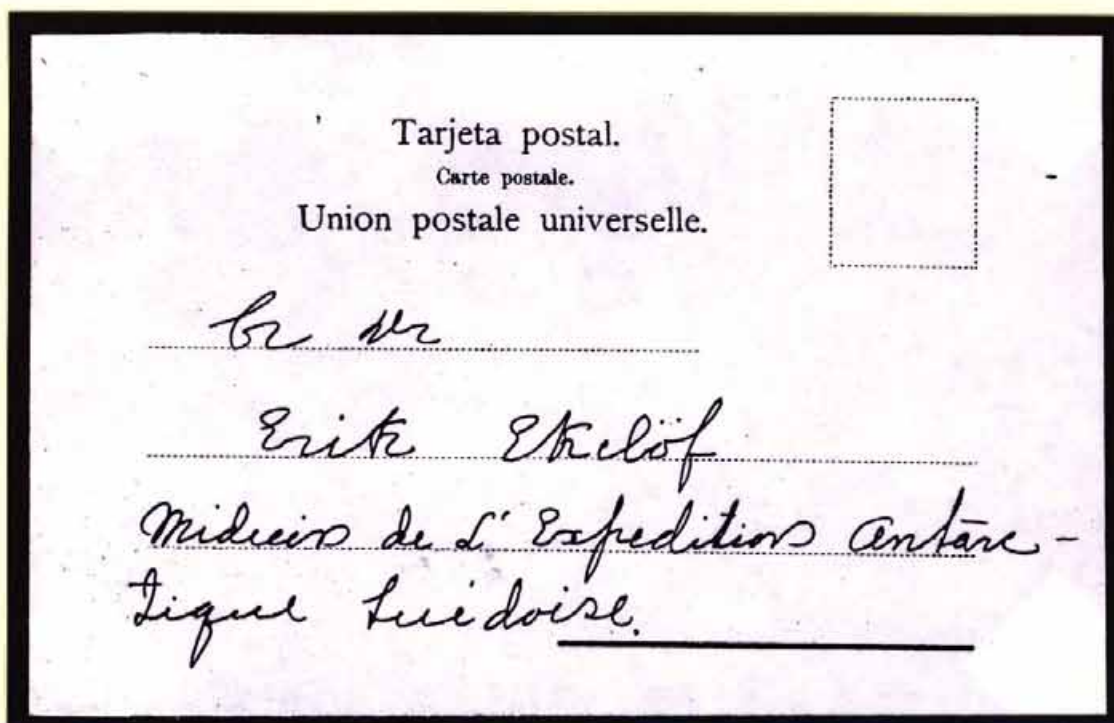 Tarjeta postal.
Carte postale.
Union postale universelle.
Dr
Erik Ekelöf
Médecin de L'Expedition Antarc-
tique Suédoise.